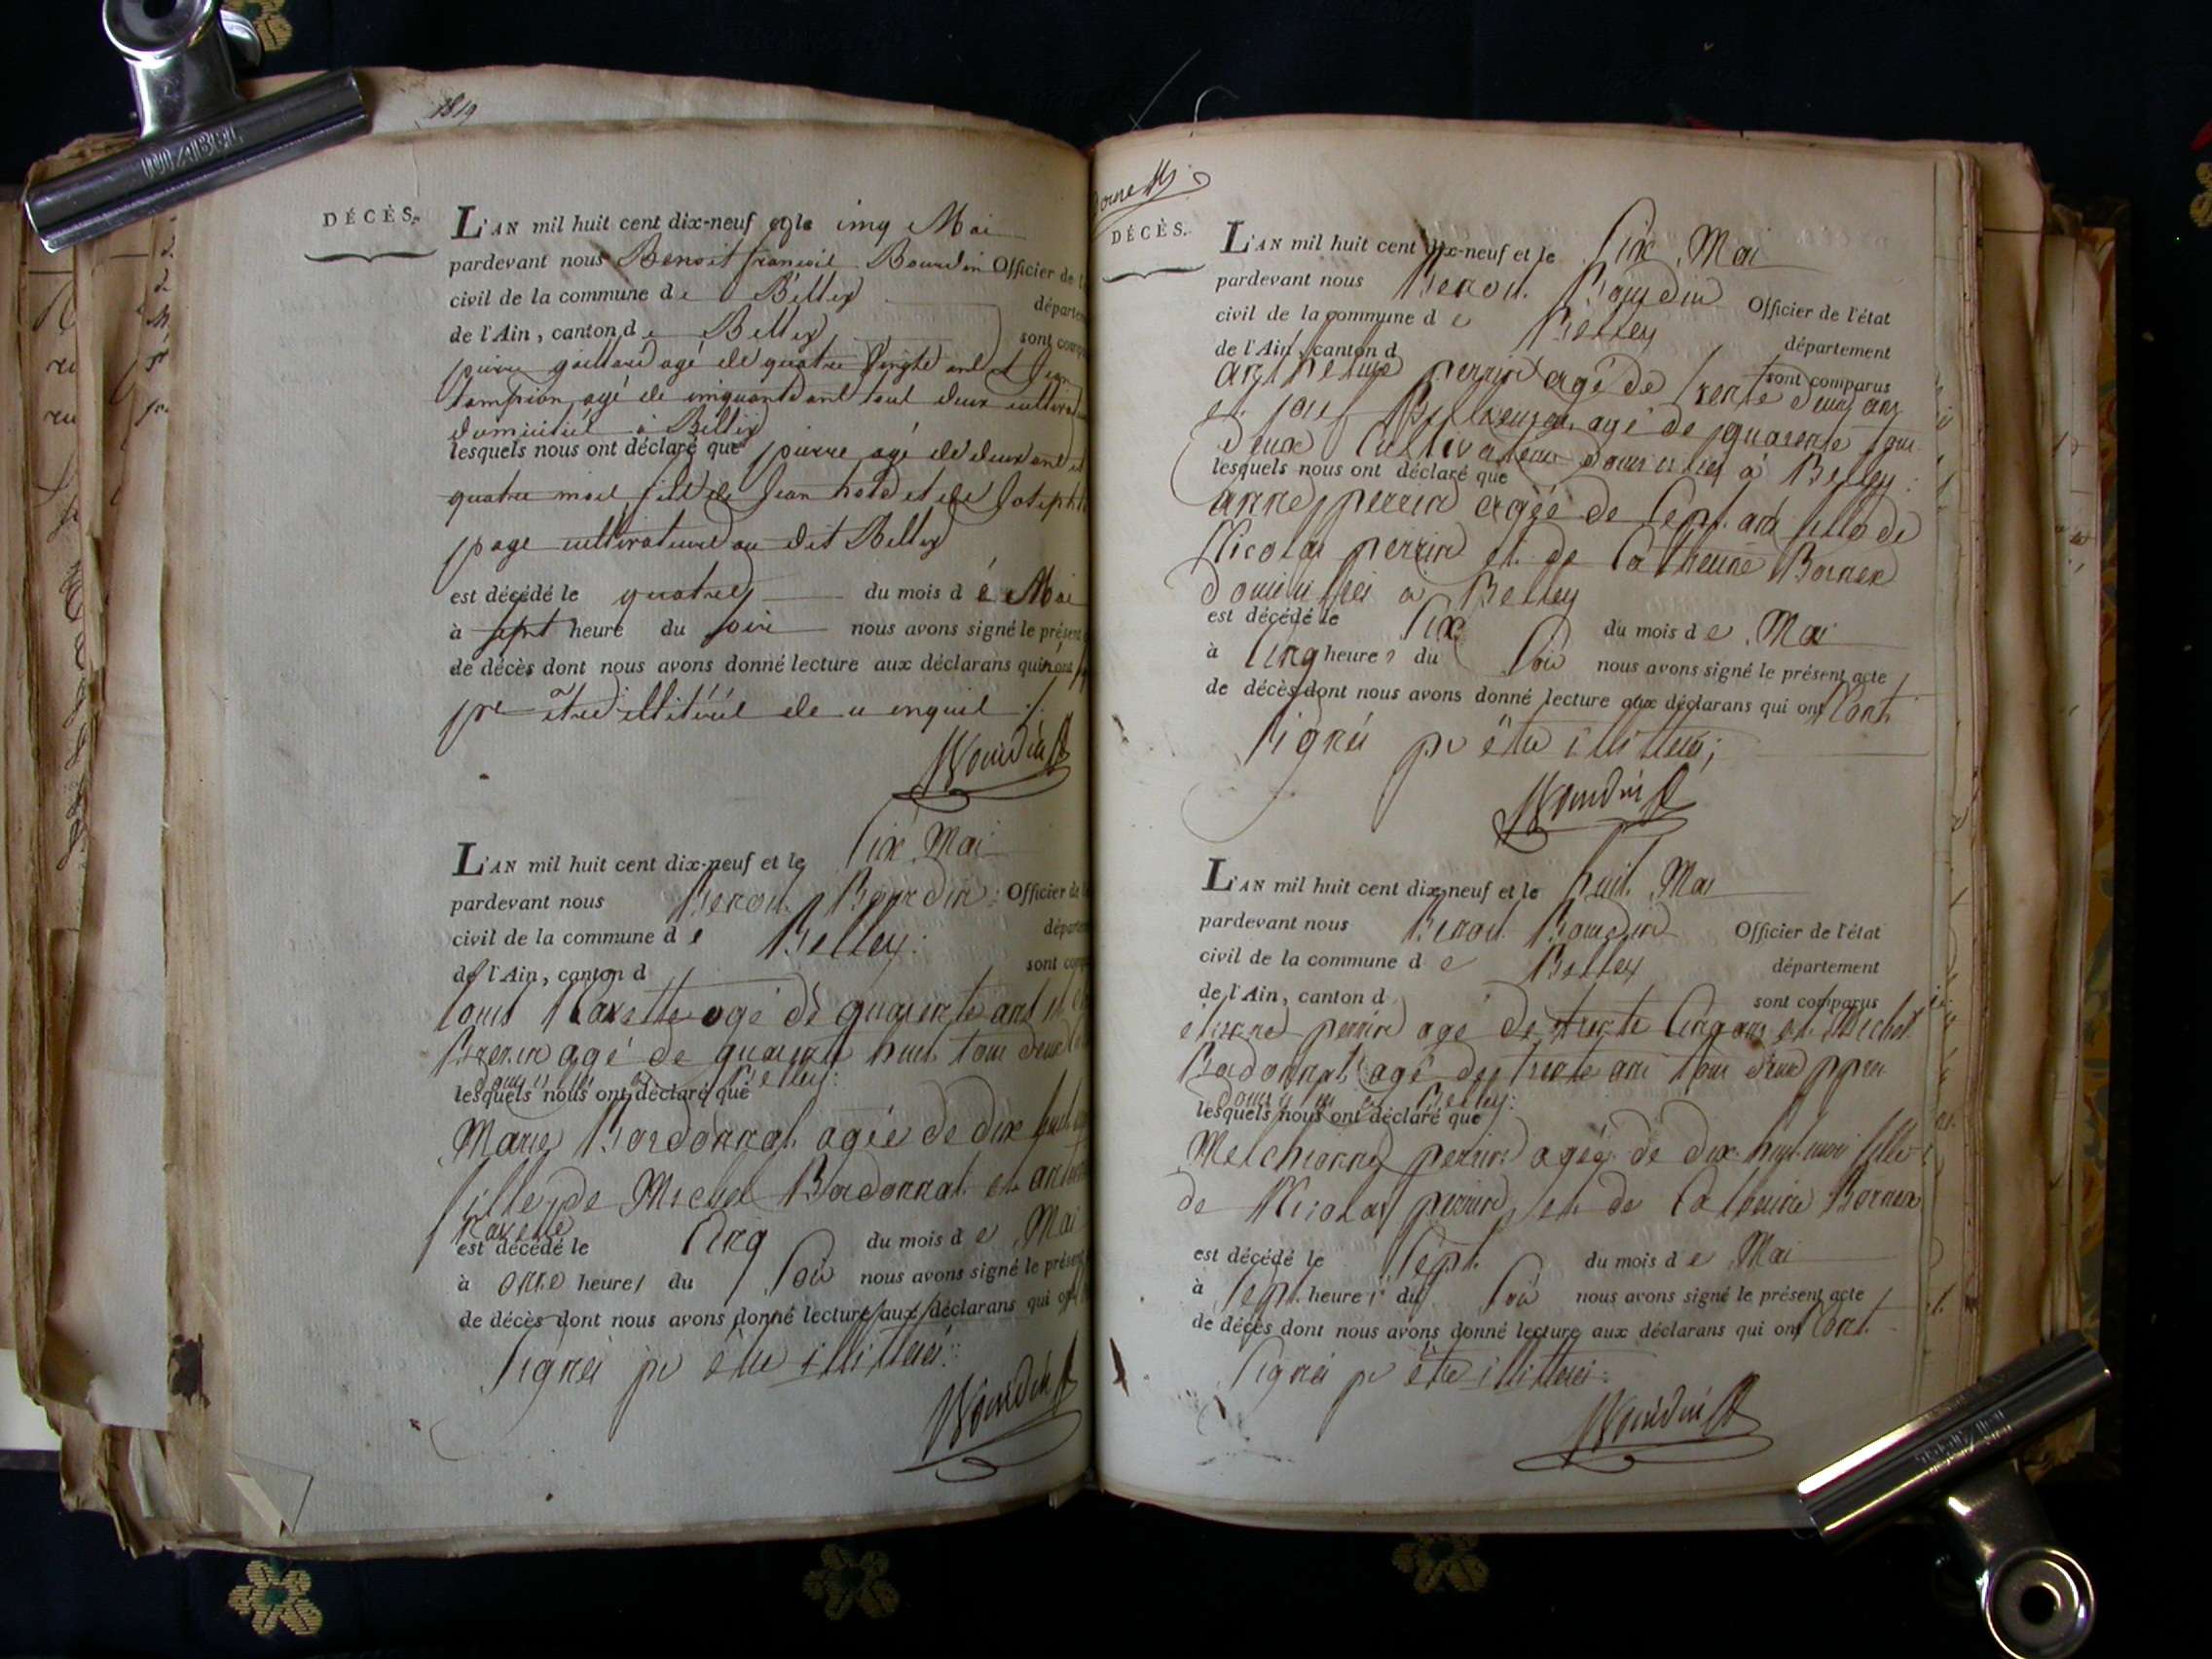 1819
DÉCÈS.
L'AN mil huit cent dix-neuf et le cinq Mai
pardevant nous Benoit francois Bourdin Officier de l
civil de la commune de Belley départem
de l'Ain, canton de Belley sont comp
pierre gaillard agé de quatre vingts ans et
agé de cinquante ans tout deux cultivat
domicilié à Belley
lesquels nous ont déclaré que pierre agé de deux ans et
quatre mois fils de Jean et de Joseph
page cultivateurs au dit Belley
est décédé le quatre du mois de Mai
à sept heure du soire nous avons signé le présent
de décès dont nous avons donné lecture aux déclarans qui n'ont
pr etre illitéré de ce enquis ./.
Bourdin
L'AN mil huit cent dix-neuf et le Six Mai
pardevant nous Benoit Bourdin Officier de
civil de la commune de Belley. départem
de l'Ain, canton d sont comp
louis Ravette agé de quarente ans et
agé de quarente huit tous deux
domiciliés à Belley:
lesquels nous ont déclaré que
Marie Bordonnat agée de dix huit
fille de Michel Bordonnat et
Ravette
est décédé le Cinq du mois de Mai
à onze heures du Soir nous avons signé le présent
de décès dont nous avons donné lecture aux déclarans qui ont
Signés pr être illitterés.
Bourdin
DÉCÈS.
L'AN mil huit cent dix-neuf et le Six Mai
pardevant nous Benoit Bourdin Officier de l'état
civil de la commune de Belley département
de l'Ain, canton d sont comparus
anthelme perrin agé de trente deux ans
et agé de quarente tous
deux Cultivateurs domiciliés à Belley:
lesquels nous ont déclaré que
anne perrin agée de Sept ans fille de
Nicolas perrin et de Catherine Bornex
domiciliés à Belley
est décédé le Six du mois de Mai
à Cinq heures du Soir nous avons signé le présent acte
de décès dont nous avons donné lecture aux déclarans qui ont l'ont
Signés pr être illitterés;
Bourdin
L'AN mil huit cent dix-neuf et le huit Mai
pardevant nous Benoit Bourdin Officier de l'état
civil de la commune de Belley département
de l'Ain, canton d sont comparus
etienne perrin agé de trente Cinq ans et Michel
Bordonnat agé de trente ans tous deux
domiciliés à Belley:
lesquels nous ont déclaré que
Melchionne perrin agée de dix huit mois fille
de Nicolas perrin et de Catherine Bornex
est décédé le Sept du mois de Mai
à Sept heures du Soir nous avons signé le présent acte
de décès dont nous avons donné lecture aux déclarans qui ont l'ont
Signés pr être illitterés.
Bourdin